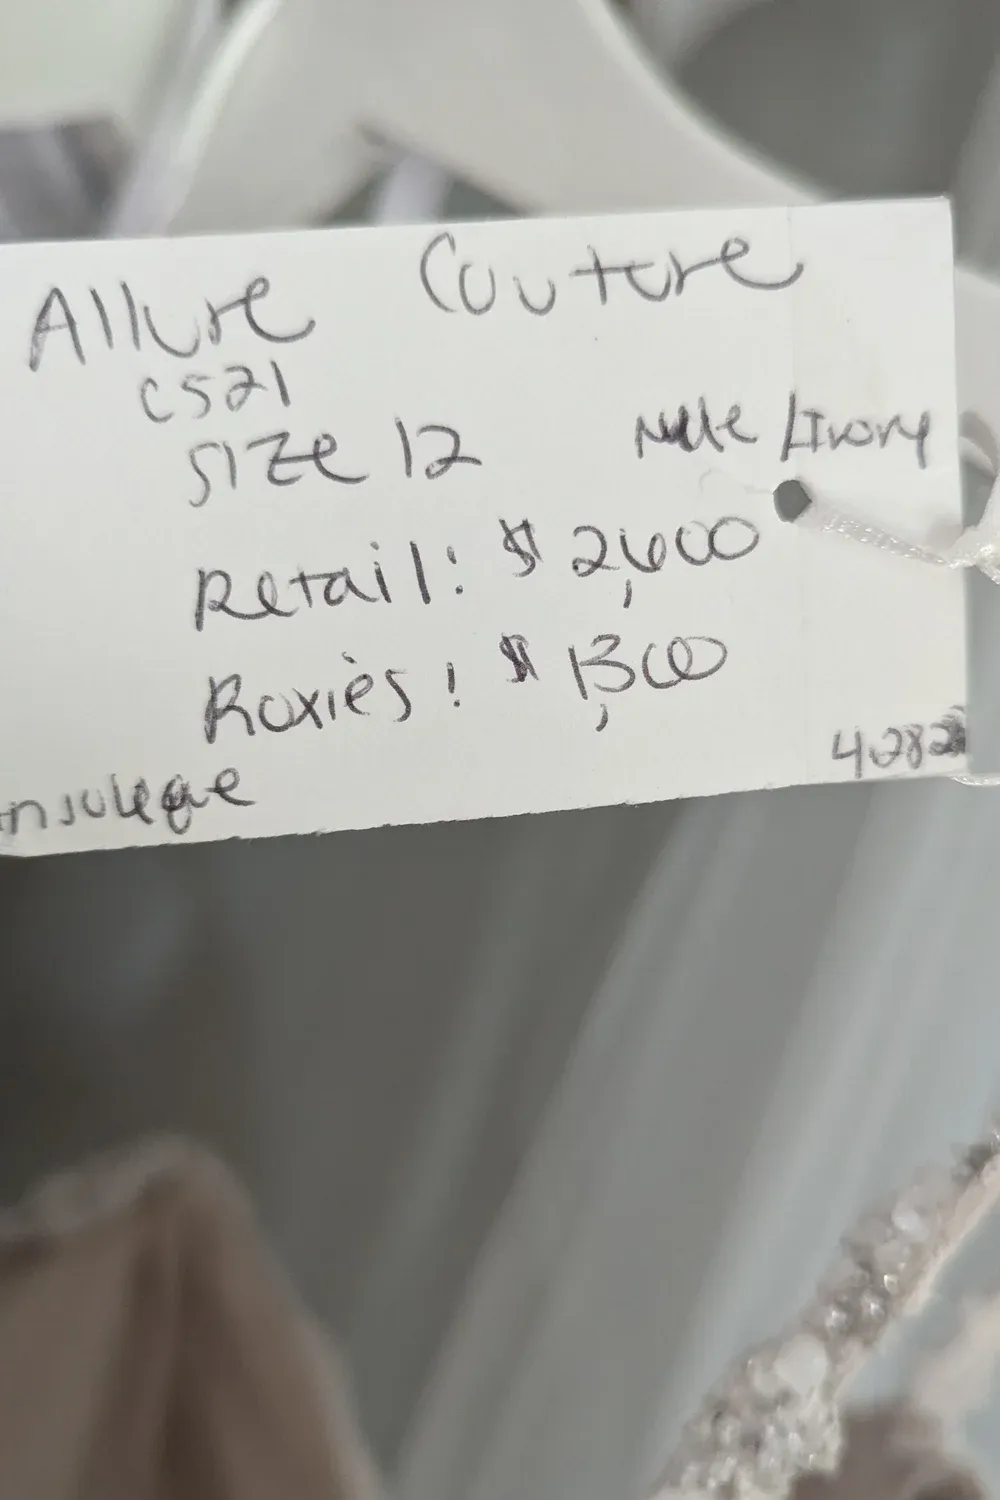 Allure Couture
C521
Size 12
Nude / Ivory
Retail: $2,600
Roxies: $1,300
4282